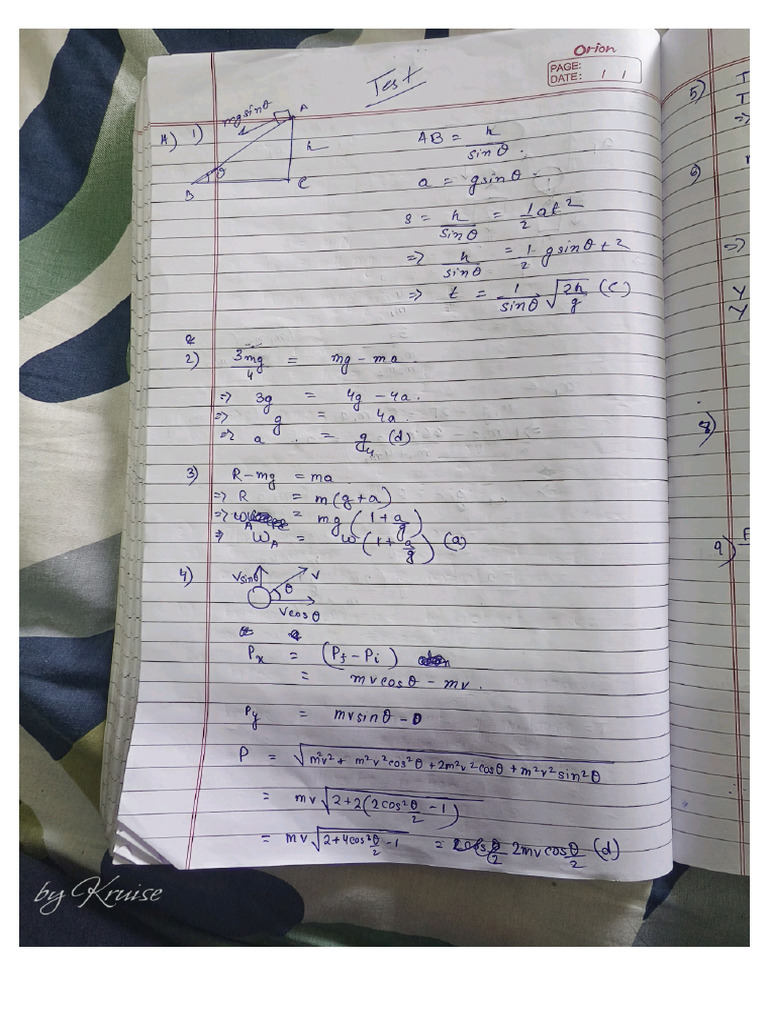 Orion
PAGE:
DATE: / /
Test
A) 1)
mg sinθ
A
h
θ
B
C
AB = h/sinθ.
a = g sinθ
s = h/sinθ = 1/2 at²
=> h/sinθ = 1/2 g sinθ t²
=> t = 1/sinθ √(2h/g) (c)
2) 3mg/4 = mg - ma
=> 3g = 4g - 4a.
=> g = 4a
=> a = g/4 (d)
3) R - mg = ma
=> R = m(g+a)
=> = mg(1 + a/g)
=> W_A = w(1 + a/g) (a)
4)
V sinθ
V
θ
V cosθ
P_x = (P_f - P_i)
= mvcosθ - mv.
P_y = mvsinθ - 0
P = √(m²v² + m²v²cos²θ + 2m²v²cosθ + m²v²sin²θ)
= mv√(2+2(2cos²θ/2 - 1))
= mv√(2+4cos²θ/2 - 1) = 2mvcosθ/2 (d)
5)
6)
=>
Y
Y
8)
9)
by Kruise